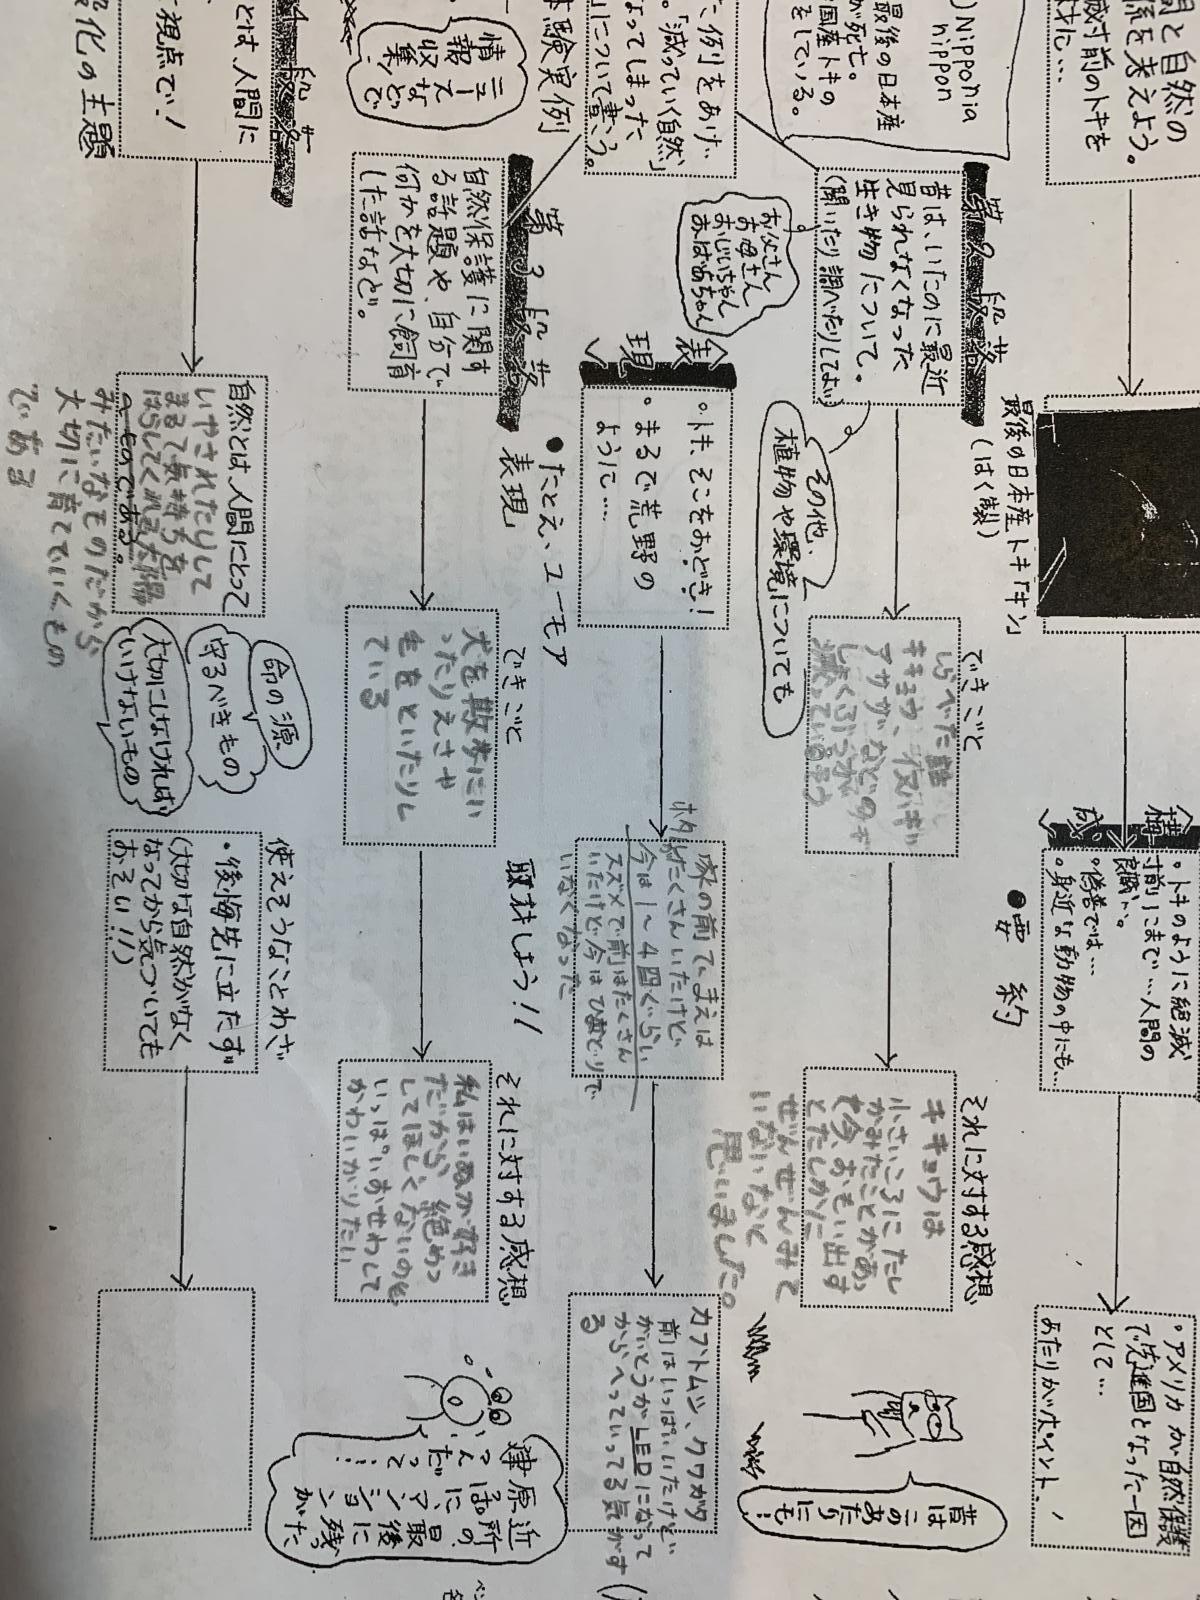 間と自然の
係を考えよう。
滅寸前のトキを
材に…
最後の日本産トキ「キン」
(はく製)
構成
・トキのように絶滅
寸前にまで…人間の
良識…。
・偽善では…
・身近な動物の中にも…
・アメリカが自然保護
で先進国となった一因
として…
あたりがポイント。
)Nipponia
nippon
最後の日本産
が死亡。
国産トキの
をしている。
第2段落
昔は、いたのに最近
見られなくなった
生き物について。
(聞いたり調べたりしよう)
お父さん
お母さん
おじいちゃん
おばあちゃん
その他、
植物や環境についても
できごと
しらべた話
キキョウ、
アサガ
減っている
●要約
それに対する感想
キキョウは
小さいころにたし
かみたことがあっ
今、おもい出す
とたしかに
ぜんぜんみて
いないなと
思いました。
昔は
このあたりにも…
た例をあげ、
。「減っていく自然」
なってしまった
」について書こう。
表現
・トキ、そこをおどき!
・まるで荒野の
ように…
家の前でまえは
たくさんいたけど
今は1~4回ぐらい
スズメで前はたくさん
いたけど今はひめどりで
いなくなった
カブトムシ、クワガタ
前はいっぱいいたけどい
がいとうがLEDになって
からへっていってる気がす
る
体験実例
ニュース
などで
情報
収集!
第3段落
自然保護に関す
る話題や、自分で
何かを大切に飼育
した話など。
●たとえ、ユーモア
表現
できごと
犬を散歩にい
ったりえさや
毛をといたりし
ている
取材しよう!!
それに対する感想
私はいぬが好き
だから絶めつ
してほしくないので
いっぱいおせわして
かわいがりたい
近所の最後に残った
原っぱにマンションが
建つんだって…
第4段落
とは、人間に
視点で…!
般化の主題
自然とは、人間にとって
いやされたりして
まるで気持ちを
はらしてくれる太陽
みたいなものだから
大切に育てていくもの
である
のものである。
命の源
守るべきもの
大切にしなければ
いけないもの
使えそうなことわざ
・後悔先に立たず
(大切な自然がなく
なってから気づいても
おそい!!)